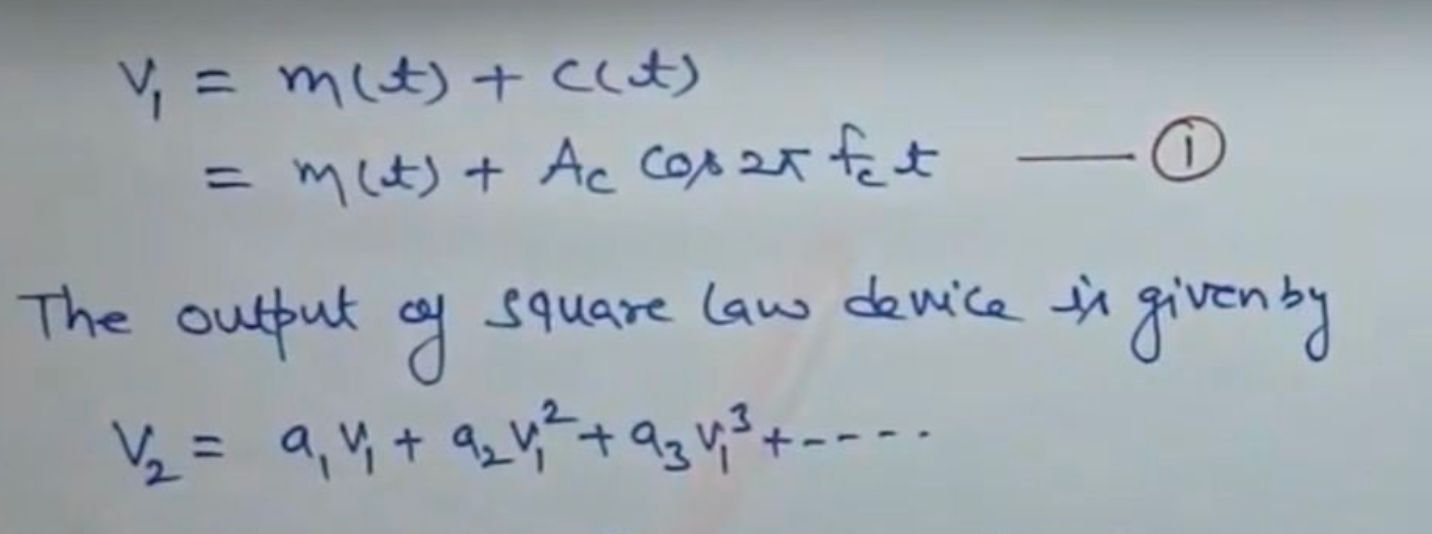 V₁ = m(t) + C(t)
= m(t) + A_c cos 2π f_c t —— ①
The output of square law device is given by
V₂ = a₁ V₁ + a₂ V₁² + a₃ V₁³ + -----